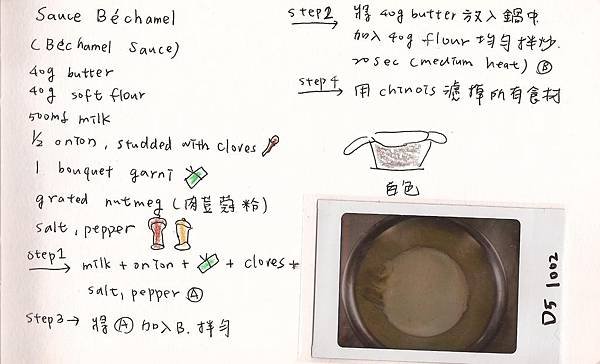 Sauce Béchamel
(Béchamel Sauce)
40g butter
40g soft flour
500ml milk
½ onion, studded with cloves
1 bouquet garni
grated nutmeg (肉荳蔻粉)
salt, pepper
step1 → milk + onion + + cloves +
salt, pepper Ⓐ
step3 → 將 Ⓐ 加入 B. 拌勻
step2 → 將 40g butter 放入鍋中
加入 40g flour 均勻拌炒.
20 sec (medium heat) Ⓑ
step4 → 用 chinois 濾掉所有食材
白色
D5 1002